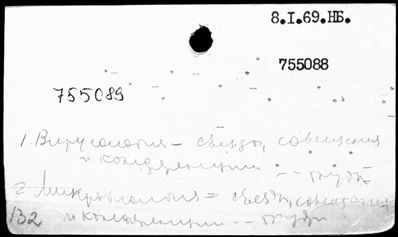 8.I.69.НБ.
755088
755089
1. Вирусология – съезды, совещания
и конференции -- труды
2. Микробиология = съезды, совещания
132 и конференции -- труды